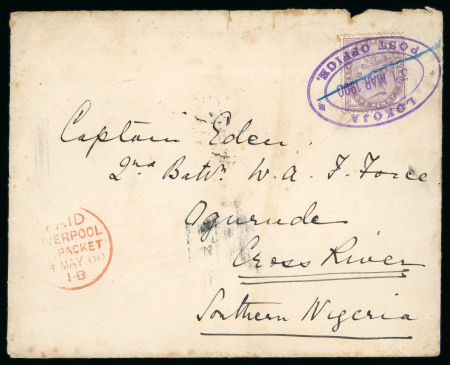 LOKOJA
POST OFFICE.
MAR 1900
Captain Eden.
2nd Batn. W. A. F. Force
Ogurude
Cross River
Southern Nigeria
PAID
LIVERPOOL
PACKET
MAY 00
1-B